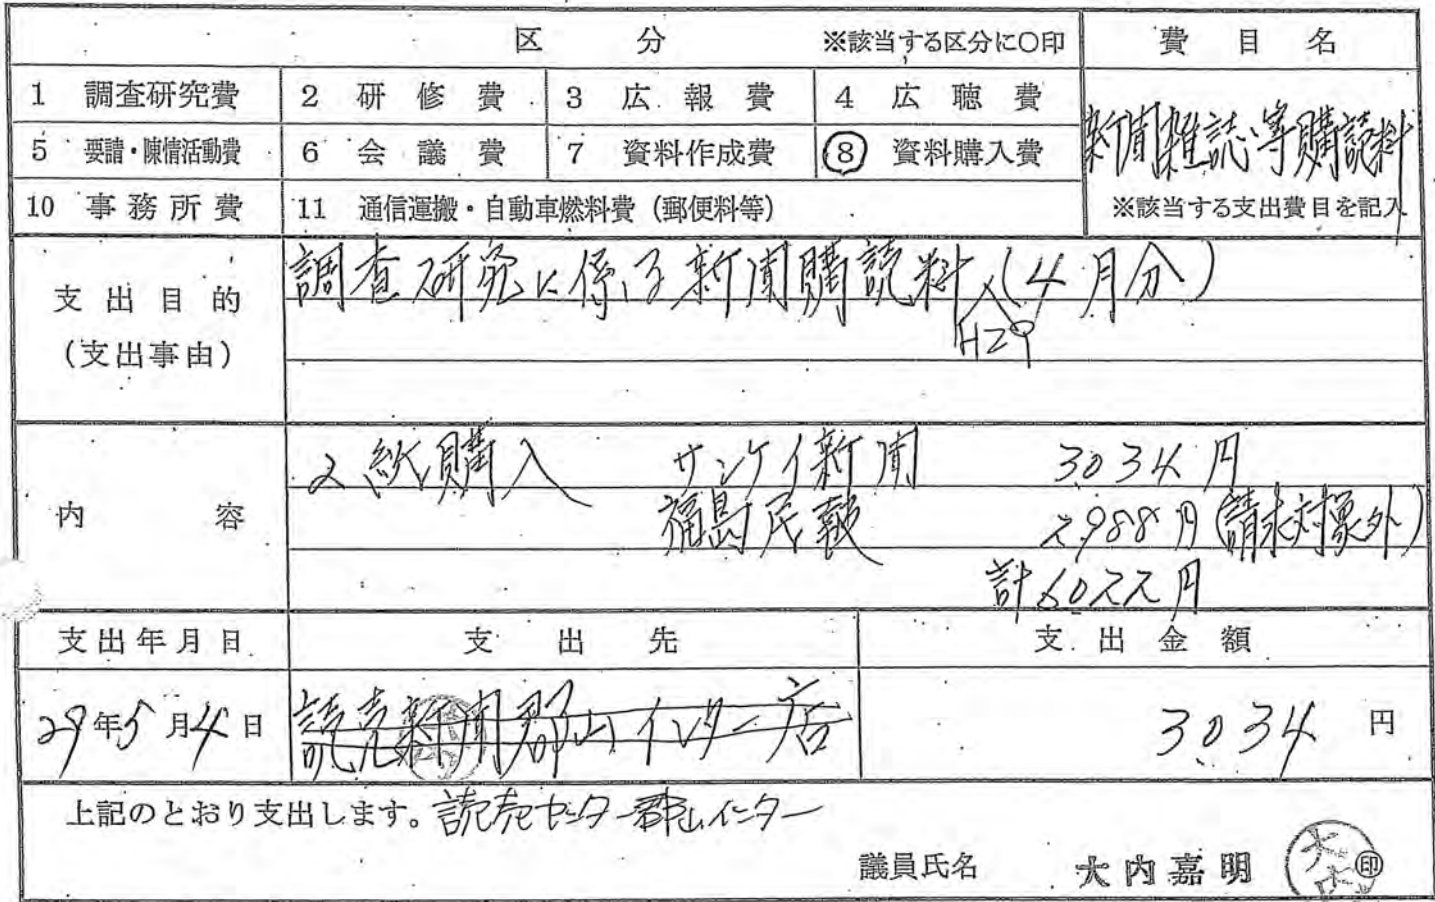 区 分 ※該当する区分に〇印 費目名
1 調査研究費 2 研修費 3 広報費 4 広聴費
新聞雑誌等購読料
5 要請・陳情活動費 6 会議費 7 資料作成費 ⑧ 資料購入費
10 事務所費 11 通信運搬・自動車燃料費（郵便料等） ※該当する支出費目を記入
支出目的 調査研究に係る新聞購読料(4月分)
H29
(支出事由)
2紙購入 サンケイ新聞 3034円
内容 福島民報 2,988円(請求対象外)
計6022円
支出年月日 支出先 支出金額
29年5月4日 読売新聞郡山インター店 3034円
上記のとおり支出します。読売センター郡山インター
議員氏名 大内嘉明 ㊞